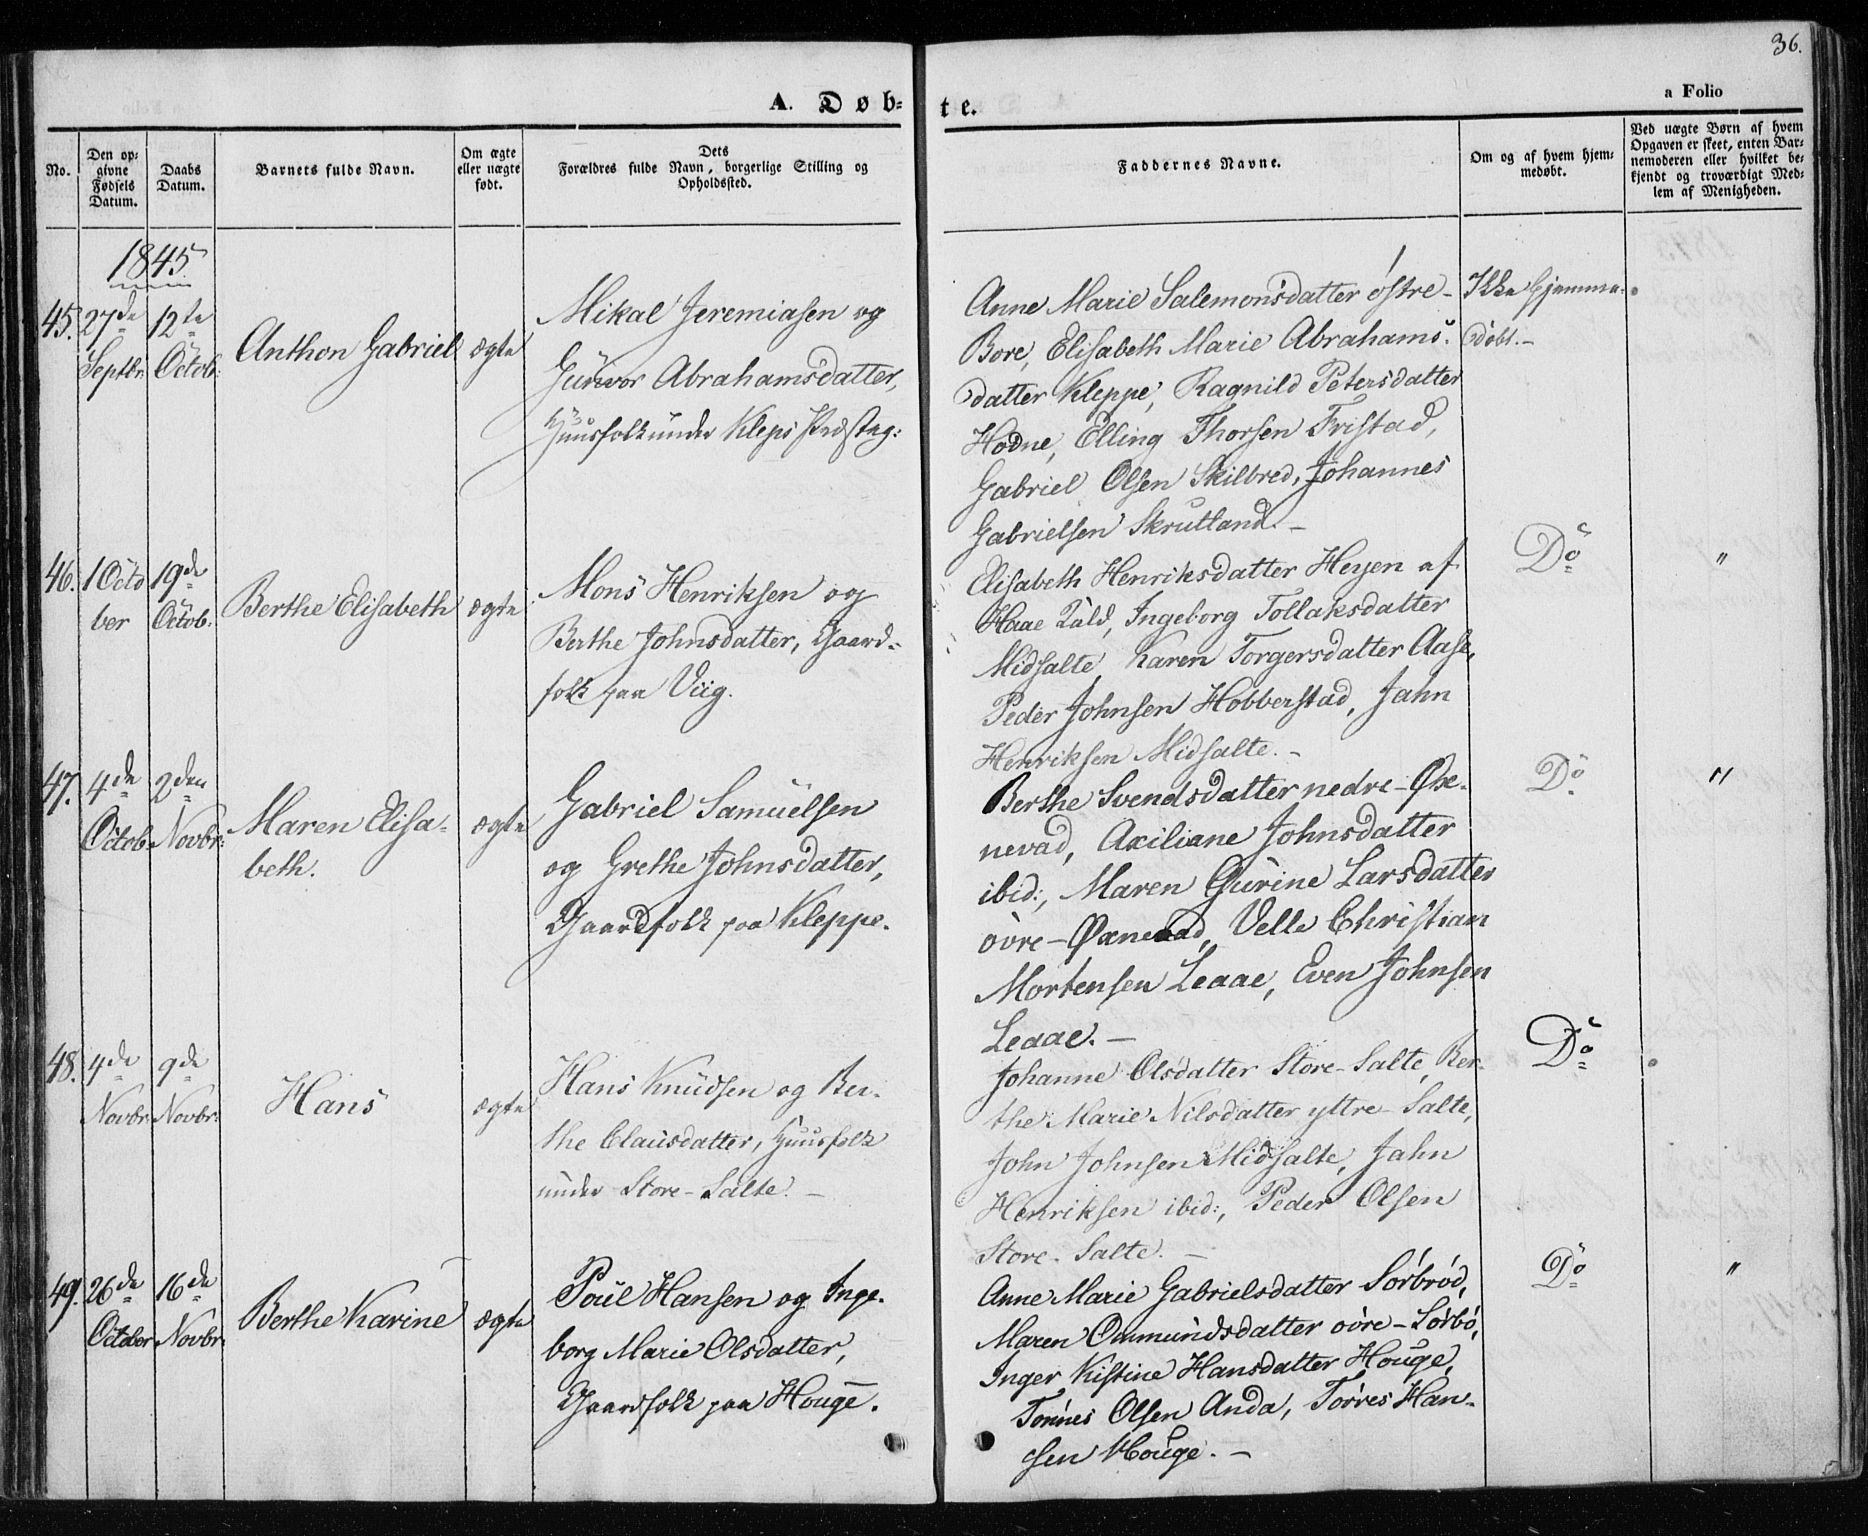 36.
A. Døbte.
a Folio
No.
Den opgivne Fødsels Datum.
Daabs Datum.
Barnets fulde Navn.
Om ægte eller uægte født.
Dets Forældres fulde Navn, borgerlige Stilling og Opholdssted.
Faddernes Navne.
Om og af hvem hjemmedøbt.
Ved uægte Børn af hvem Opgaven er skeet, enten Barnemoderen eller hvilket bekjendt og troværdigt Medlem af Menigheden.
1845
45.
27de
Septbr:
12te
Octob:
Anthon Gabriel
ægte
Mikal Jeremiasen og
Gurvor Abrahamsdatter,
Huusfolk under Kleps Præsteg:
Anne Marie Salemonsdatter østre-
Bore, Elisabeth Marie Abrahams-
datter Kleppe, Ragnild Petersdatter
Hodne, Elling Thorsen Fristad,
Gabriel Olsen Skilbred, Johannes
Gabrielsen Skrutland. -
Ikke hjemme-
døbt. -
46.
1 Octo
ber
19de
Octob:
Berthe Elisabeth
ægte
Mons Henriksen og
Berthe Johnsdatter, Gaard-
folk paa Viig.
Elisabeth Henriksdatter Heyen af
Haae, Ingeborg Tollaksdatter
Midsalte, Karen Torgersdatter Aase,
Peder Johnsen Hobberstad, Jahn
Henriksen Midsalte. -
Do
"
47.
4de
Octob:
2den
Novbr:
Maren Elisa-
beth.
ægte
Gabriel Samuelsen
og Grethe Johnsdatter,
Gaardfolk paa Kleppe.
Berthe Svendsdatter nedre-Øxe-
nevad, Axiliane Johnsdatter
ibid:, Maren Gurine Larsdatter
øvre-Øxnevad, Velle Christian
Mortensen Leaae, Even Johnsen
Leaae. -
Do
"
48.
4de
Novbr:
9de
Novbr:
Hans
ægte
Hans Knudsen og Ber-
the Clausdatter, Huusfolk
under Store-Salte. -
Johanne Olsdatter Store-Salte, Ber-
the Marie Nilsdatter yttre-Salte,
John Johnsen Midsalte, Jahn
Henriksen ibid:, Peder Olsen
Store-Salte. -
Do
49.
26de
October
16de
Novbr:
Berthe Karine
ægte
Poul Hansen og Inge-
borg Marie Olsdatter,
Gaardfolk paa Houge.
Anne Marie Gabrielsdatter Sørbrød,
Maren Ommundsdatter øvre-Sørbø,
Inger Kistine Hansdatter Houge,
Tønnes Olsen Anda, Torres Han-
sen Houge. -
Do
"